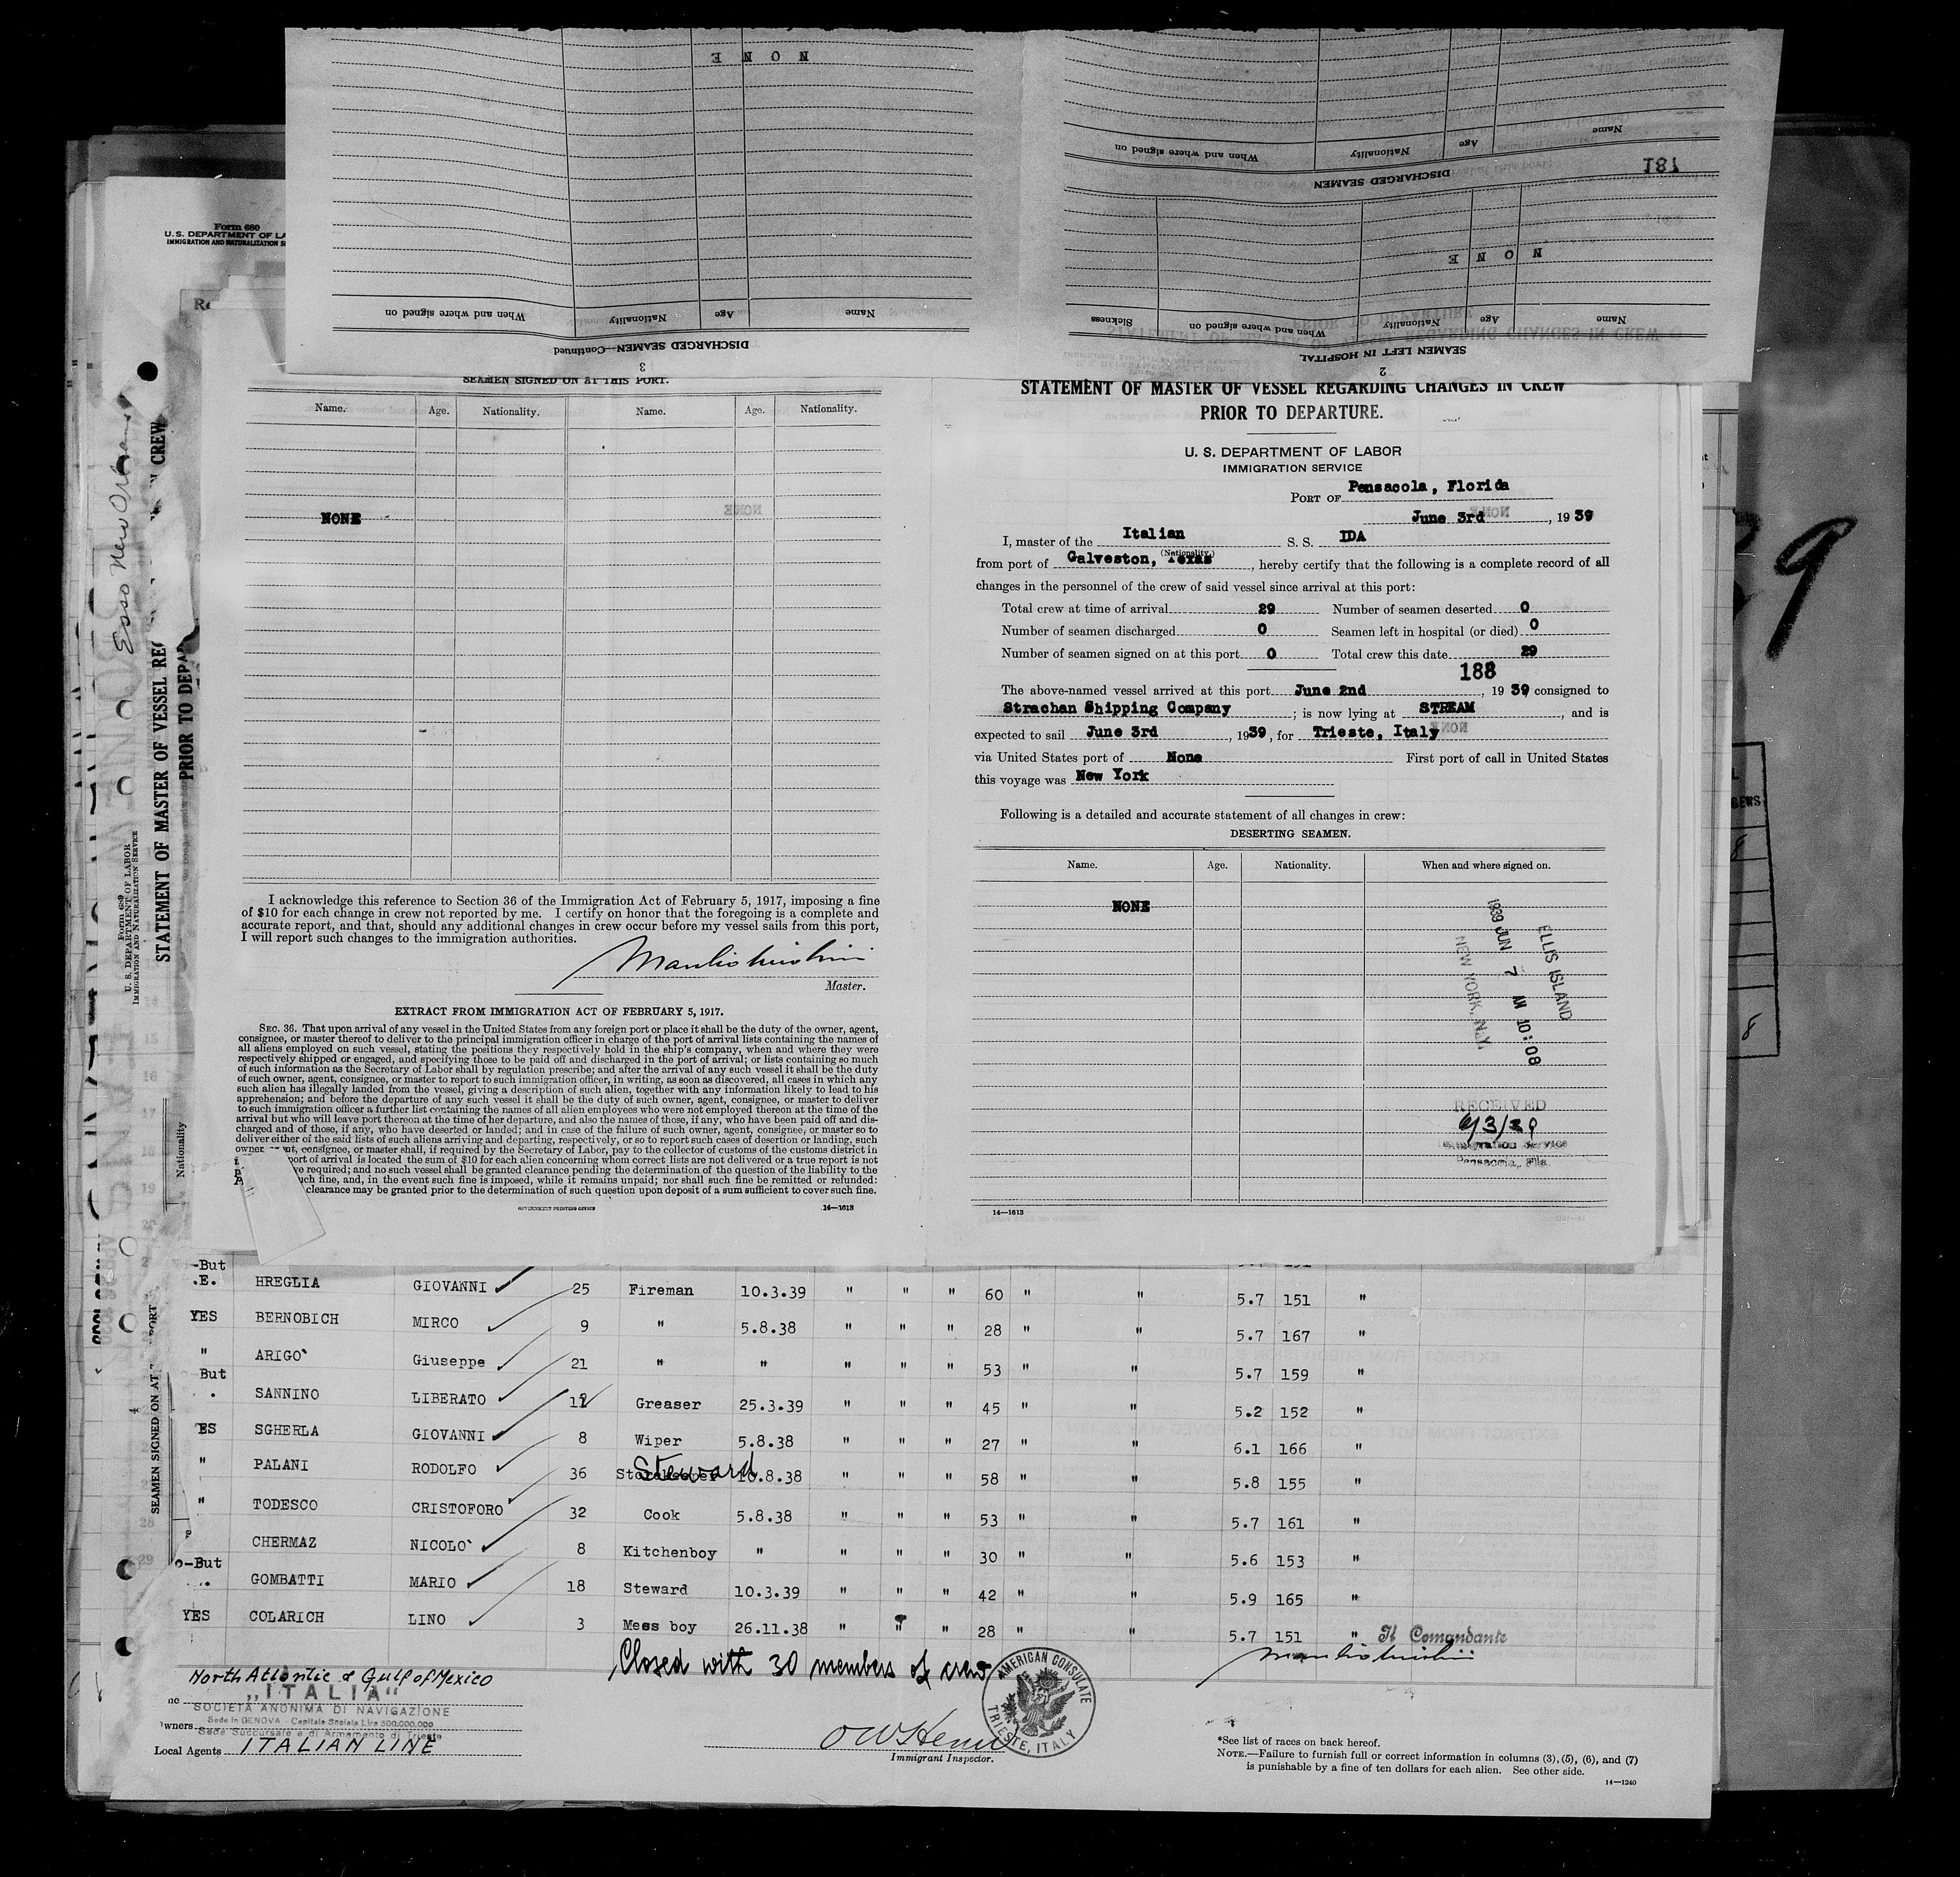 NONE
3
DISCHARGED SEAMEN—Continued
Name
Age
Nationality
When and where signed on
NONE
2
SEAMEN LEFT IN HOSPITAL
Name
Age
Nationality
When and where signed on
Sickness
NONE
DISCHARGED SEAMEN
181
Name
Age
Nationality
When and where signed on
Form 680
U. S. DEPARTMENT OF LA
IMMIGRATION AND NATURALIZATION S
Esso New Orleans
Form 689
U. S. DEPARTMENT OF LABOR
IMMIGRATION AND NATURALIZATION SERVICE
STATEMENT OF MASTER OF VESSEL RE
CREW
PRIOR TO DEPA
Nationality
SEAMEN SIGNED ON AT
PORT
4
SEAMEN SIGNED ON AT THIS PORT.
Name. Age. Nationality. Name. Age. Nationality.
NONE
I acknowledge this reference to Section 36 of the Immigration Act of February 5, 1917, imposing a fine
of $10 for each change in crew not reported by me. I certify on honor that the foregoing is a complete and
accurate report, and that, should any additional changes in crew occur before my vessel sails from this port,
I will report such changes to the immigration authorities.
Master.
EXTRACT FROM IMMIGRATION ACT OF FEBRUARY 5, 1917.
SEC. 36. That upon arrival of any vessel in the United States from any foreign port or place it shall be the duty of the owner, agent,
consignee, or master thereof to deliver to the principal immigration officer in charge of the port of arrival lists containing the names of
all aliens employed on such vessel, stating the positions they respectively hold in the ship's company, when and where they were
respectively shipped or engaged, and specifying those to be paid off and discharged in the port of arrival; or lists containing so much
of such information as the Secretary of Labor shall by regulation prescribe; and after the arrival of any such vessel it shall be the duty
of such owner, agent, consignee, or master to report to such immigration officer, in writing, as soon as discovered, all cases in which any
such alien has illegally landed from the vessel, giving a description of such alien, together with any information likely to lead to his
apprehension; and before the departure of any such vessel it shall be the duty of such owner, agent, consignee, or master to deliver
to such immigration officer a further list containing the names of all alien employees who were not employed thereon at the time of the
arrival but who will leave port thereon at the time of her departure, and also the names of those, if any, who have been paid off and dis-
charged and of those, if any, who have deserted or landed; and in case of the failure of such owner, agent, consignee, or master so to
deliver either of the said lists of such aliens arriving and departing, respectively, or so to report such cases of desertion or landing, such
owner nt, consignee, or master shall, if required by the Secretary of Labor, pay to the collector of customs of the customs district in
port of arrival is located the sum of $10 for each alien concerning whom correct lists are not delivered or a true report is not
ve required; and no such vessel shall be granted clearance pending the determination of the question of the liability to the
uch fine, and, in the event such fine is imposed, while it remains unpaid; nor shall such fine be remitted or refunded:
clearance may be granted prior to the determination of such question upon deposit of a sum sufficient to cover such fine.
GOVERNMENT PRINTING OFFICE 14—1613
STATEMENT OF MASTER OF VESSEL REGARDING CHANGES IN CREW
PRIOR TO DEPARTURE.
U. S. DEPARTMENT OF LABOR
IMMIGRATION SERVICE
PORT OF Pensacola, Florida
June 3rd, 1939
I, master of the Italian S. S. IDA
(Nationality.)
from port of Galveston, Texas, hereby certify that the following is a complete record of all
changes in the personnel of the crew of said vessel since arrival at this port:
Total crew at time of arrival 29 Number of seamen deserted 0
Number of seamen discharged 0 Seamen left in hospital (or died) 0
Number of seamen signed on at this port 0 Total crew this date 29
188
The above-named vessel arrived at this port June 2nd, 1939 consigned to
Strachan Shipping Company; is now lying at STREAM, and is
expected to sail June 3rd, 1939, for Trieste, Italy
via United States port of None First port of call in United States
this voyage was New York
Following is a detailed and accurate statement of all changes in crew:
DESERTING SEAMEN.
Name. Age. Nationality. When and where signed on.
NONE
ELLIS ISLAND
1939 JUN 7 AM 10:08
NEW YORK, N.Y.
RECEIVED
6/3/39
Immigration Service
Pensacola, Fla.
14—1613
-But
.E. HREGLIA GIOVANNI 25 Fireman 10.3.39 " " " 60 " " 5.7 151 "
YES BERNOBICH MIRCO 9 " 5.8.38 " " " 28 " " 5.7 167 "
" ARIGO` Giuseppe 21 " " " " " 53 " " 5.7 159 "
But
. SANNINO LIBERATO 12 Greaser 25.3.39 " " " 45 " " 5.2 152 "
ES SGHERLA GIOVANNI 8 Wiper 5.8.38 " " " 27 " " 6.1 166 "
" PALANI RODOLFO 36 Storekeeper Steward 10.8.38 " " " 58 " " 5.8 155 "
" TODESCO CRISTOFORO 32 Cook 5.8.38 " " " 53 " " 5.7 161 "
CHERMAZ NICOLO` 8 Kitchenboy " " " " 30 " " 5.6 153 "
o-But
. GOMBATTI MARIO 18 Steward 10.3.39 " " " 42 " " 5.9 165 "
YES COLARICH LINO 3 Mess boy 26.11.38 " " " 28 " " 5.7 151 "
Il Comandante
Closed with 30 members of crew
North Atlantic & Gulf of Mexico
ne
„ITALIA“
SOCIETÀ ANONIMA DI NAVIGAZIONE
Sede in GENOVA - Capitale Sociale Lire 500.000.000
Owners Sede Succursale e di Armamento di Trieste
Local Agents ITALIAN LINE
Immigrant Inspector.
AMERICAN CONSULATE
TRIESTE, ITALY
*See list of races on back hereof.
NOTE.—Failure to furnish full or correct information in columns (3), (5), (6), and (7)
is punishable by a fine of ten dollars for each alien. See other side.
14—1240